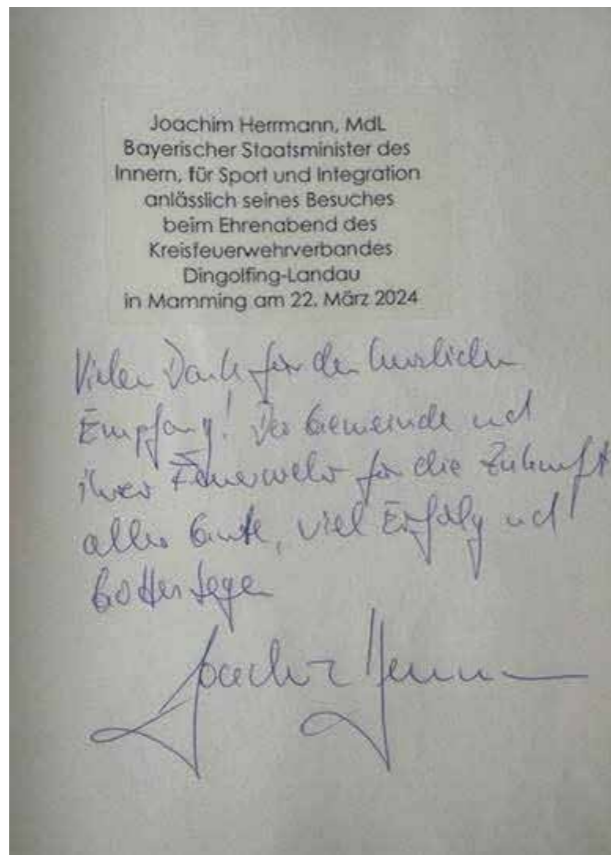 Joachim Herrmann, MdL
Bayerischer Staatsminister des
Innern, für Sport und Integration
anlässlich seines Besuches
beim Ehrenabend des
Kreisfeuerwehrverbandes
Dingolfing-Landau
in Mamming am 22. März 2024
Vielen Dank für den herzlichen
Empfang! Der Gemeinde und
ihrer Feuerwehr für die Zukunft
alles Gute, viel Erfolg und
Gottes Segen
Joachim Herrmann